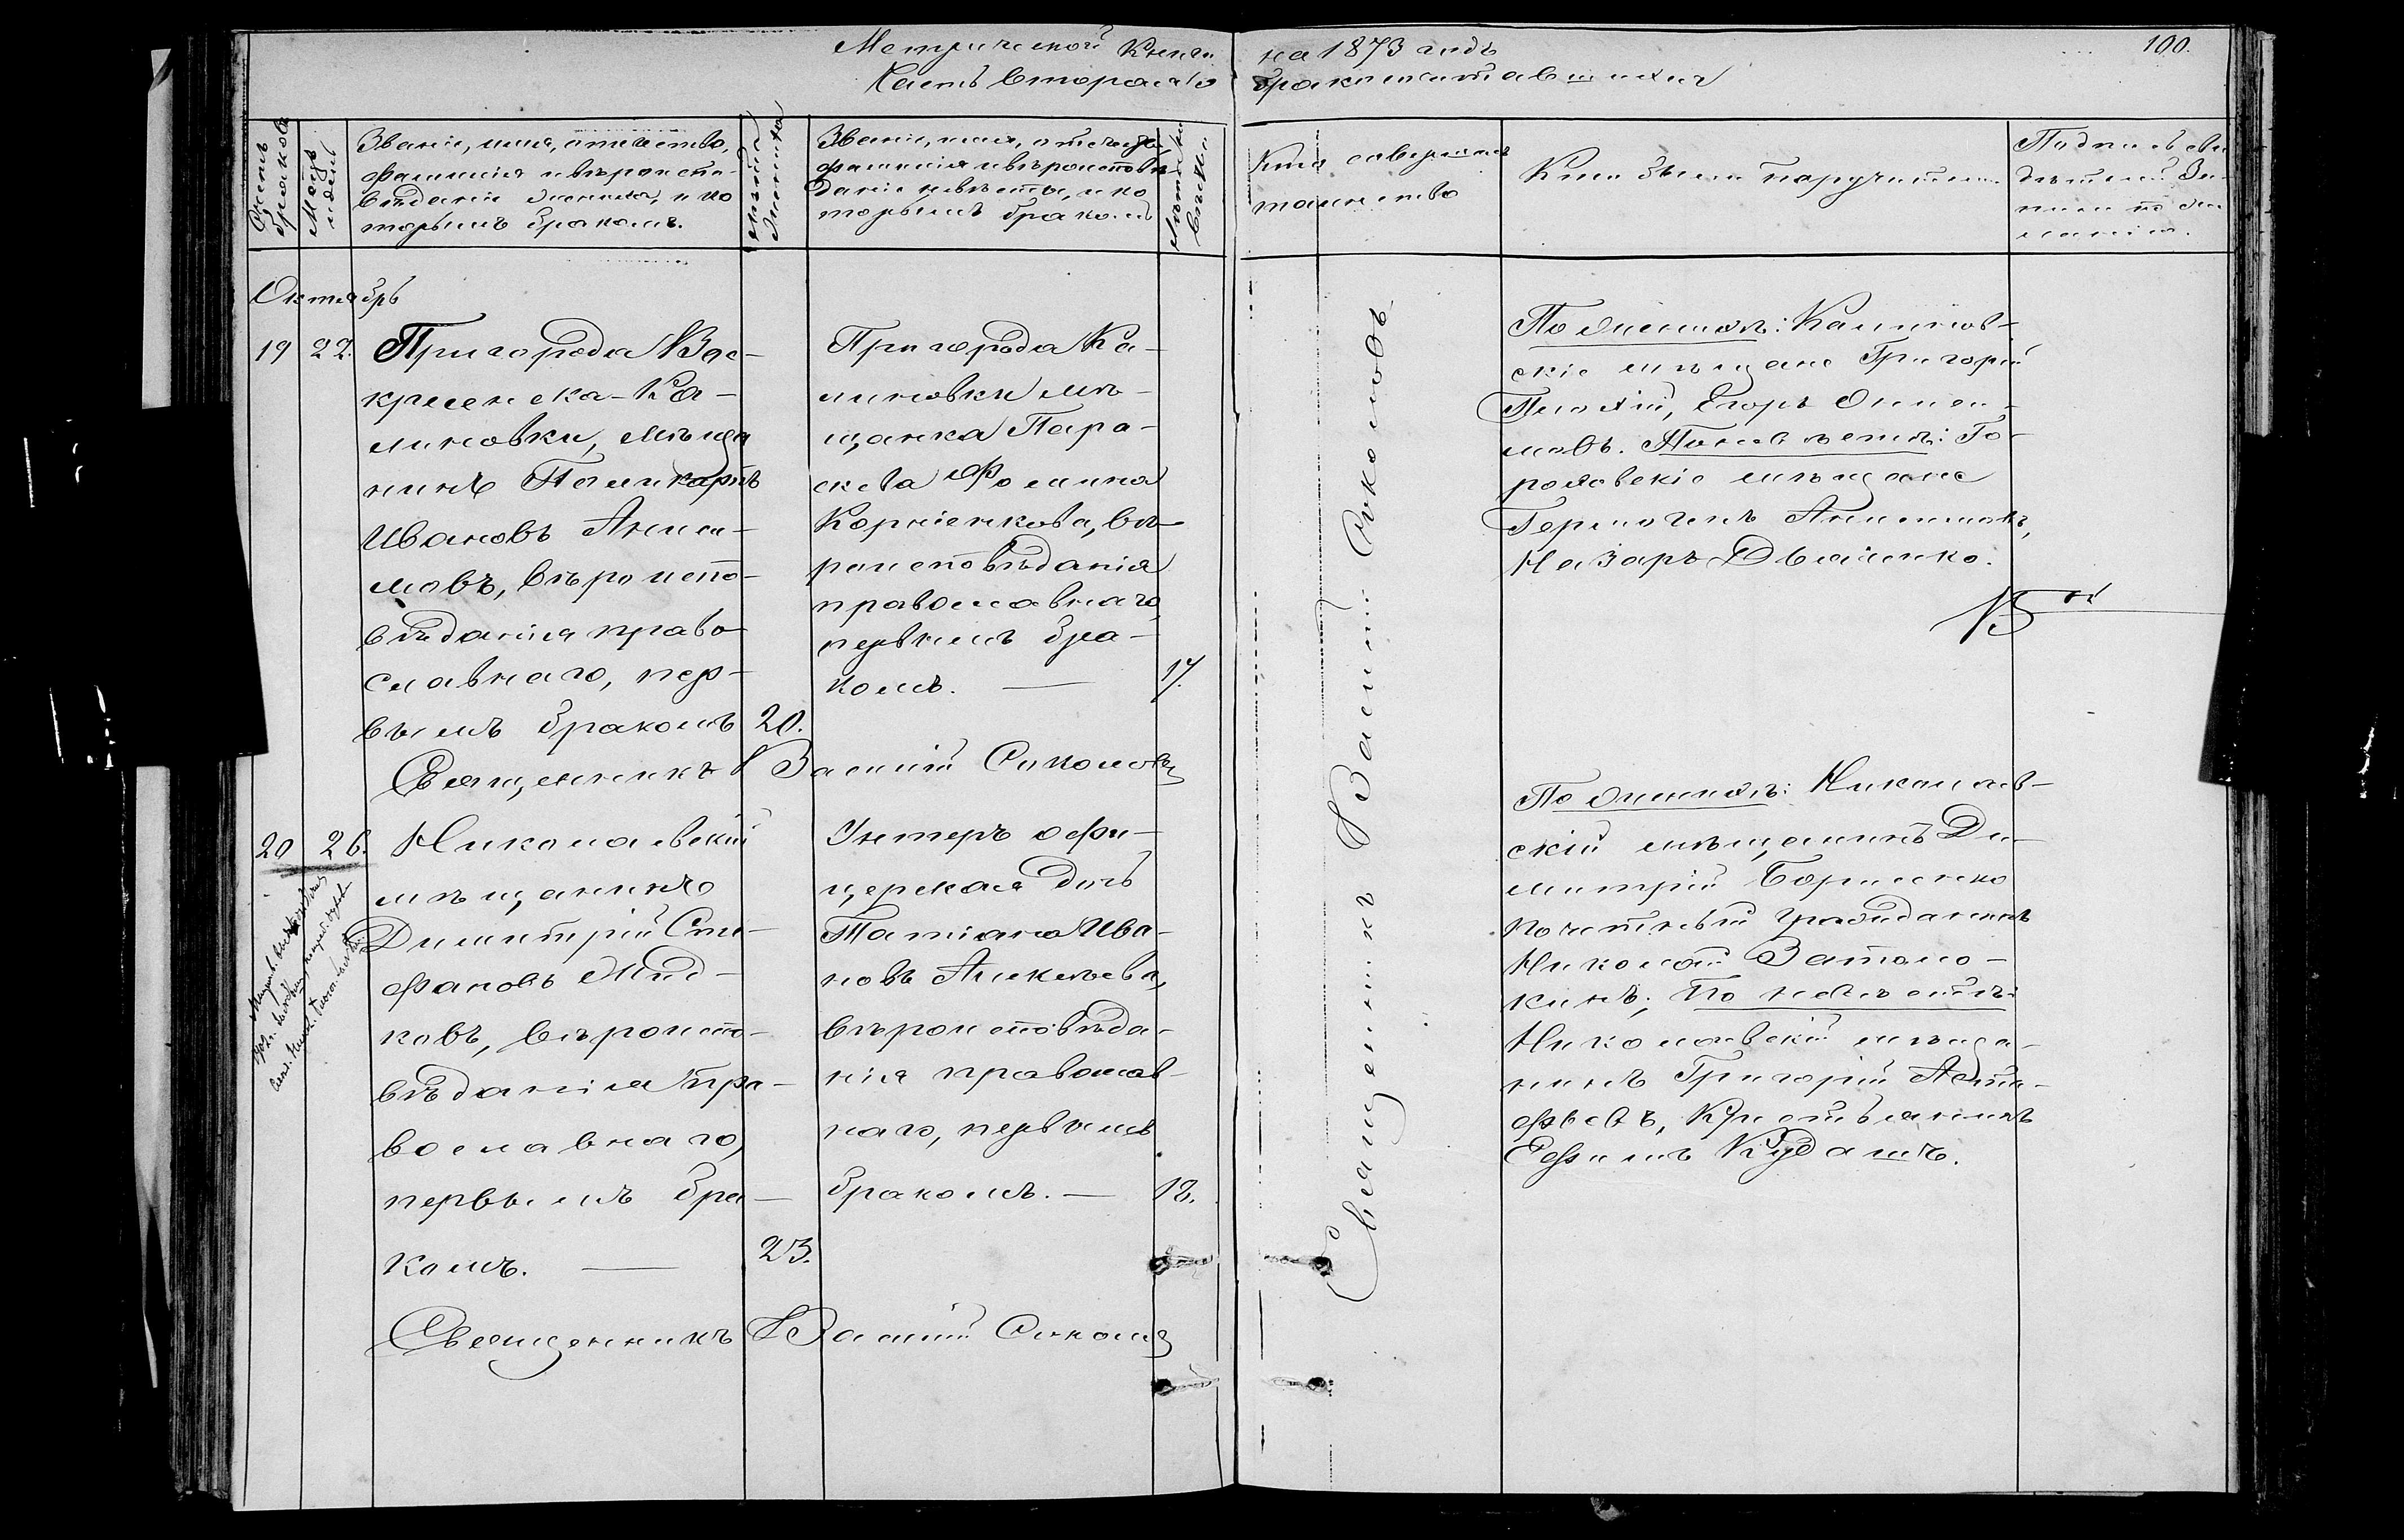 Метрической Книги на 1873 годъ
Часть Вторая о бракосочетавшихся
100.
Счетъ браковъ
Мѣсяцъ и день
Званіе, имя, отчество,
фамилія и вѣроиспо-
вѣданіе жениха, и ко
торымъ бракомъ.
Лѣта жениха
Званіе, имя, отчество,
фамилія и вѣроисповѣ-
даніе невѣсты, и ко
торымъ бракомъ
Лѣта невѣсты
Кто совершалъ
таинство
Кто были поручители.
Подпись сви
дѣтелей за-
писи по же
ланію.
Октябрь
19 22.
Пригорода Вос-
кресенска-Ка-
линовки, мѣща
нинъ Поликарпъ
Ивановъ Аниси-
мовъ, вѣроиспо-
вѣданія право-
славнаго, пер-
вымъ бракомъ
20.
Пригорода Ка-
линовки мѣ-
щанка Пара-
скева Фомина
Корніенкова, вѣ-
роисповѣданія
православнаго,
первымъ бра-
комъ.
17.
Священникъ Василій Соколовъ
По женихѣ: Калинов-
скіе мѣщане Григорій
Плохій, Егоръ Аниси-
мовъ. По невѣстѣ: Го-
ровскіе мѣщане
Гермогенъ Анисимовъ,
Назаръ
20 26.
Николаевскій
мѣщанинъ
Димитрій Сте-
фановъ
ковъ, вѣроиспо-
вѣданія пра-
вославнаго,
первымъ бра-
комъ.
23.
Унтеръ офи-
церская дочь
Татіана Ива-
нова Алексѣева,
вѣроисповѣда-
нія православ-
наго, первымъ
бракомъ.
18.
Священникъ Василій Соколовъ
Священникъ Василій Соколовъ
По женихѣ: Николаев-
скій мѣщанинъ Ди-
митрій Борисенко
почетный гражданинъ
Николай
кинъ; По невѣстѣ:
Николаевскій мѣща-
нинъ Григорій Аста-
фьевъ, Крестьянинъ
Ефимъ Кудашъ.